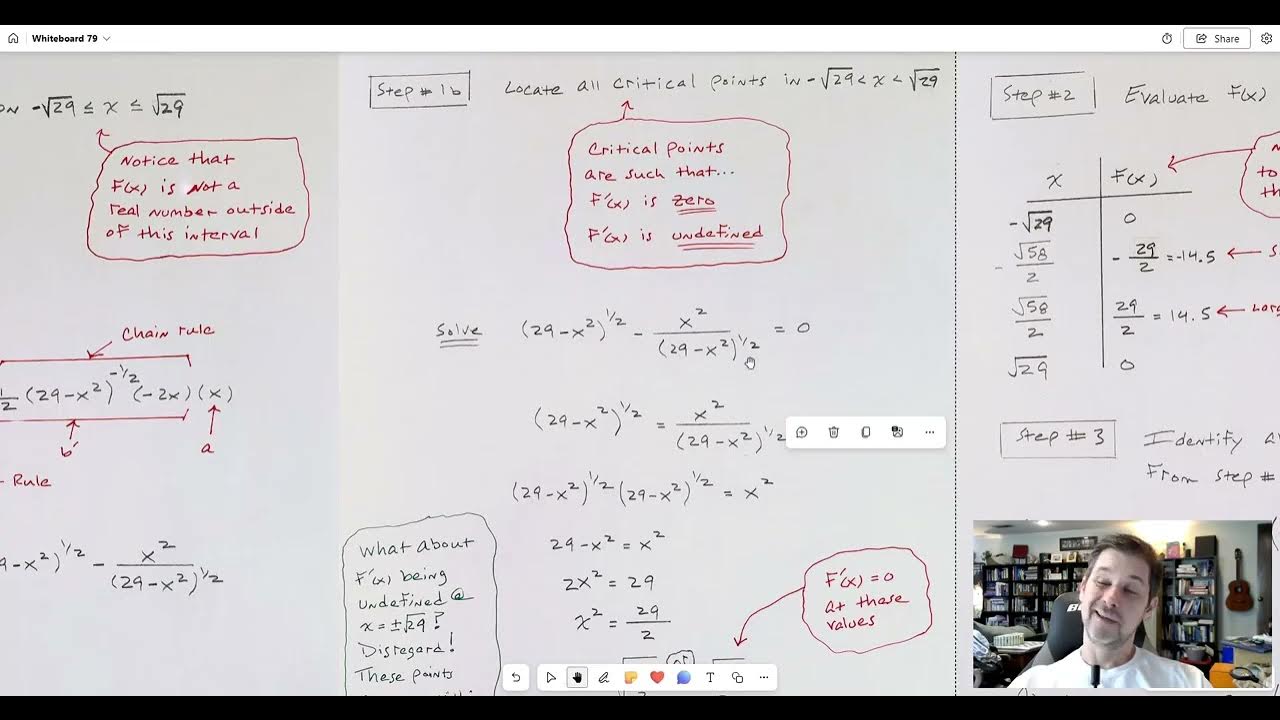 Whiteboard 79
Share
ON -√29 ≤ x ≤ √29
Notice that
F(x) is Not a
real number outside
of this interval
Chain rule
1/2 (29-x²)^-1/2 (-2x)(x)
b'
a
Rule
-x²)^1/2 - x²/(29-x²)^1/2
Step #1b
Locate all critical points in -√29 < x < √29
Critical points
are such that...
F'(x) is zero
F'(x) is undefined
Solve
(29-x²)^1/2 - x²/(29-x²)^1/2 = 0
(29-x²)^1/2 = x²/(29-x²)^1/2
(29-x²)^1/2 (29-x²)^1/2 = x²
29-x² = x²
2x² = 29
x² = 29/2
What about
F'(x) being
undefined @
x = ±√29?
Disregard!
These points
F'(x) = 0
at these
values
Step #2
Evaluate F(x)
x F(x)
-√29 0
-√58/2 -29/2 = -14.5
√58/2 29/2 = 14.5
√29 0
Step #3
Identify
From step #
T